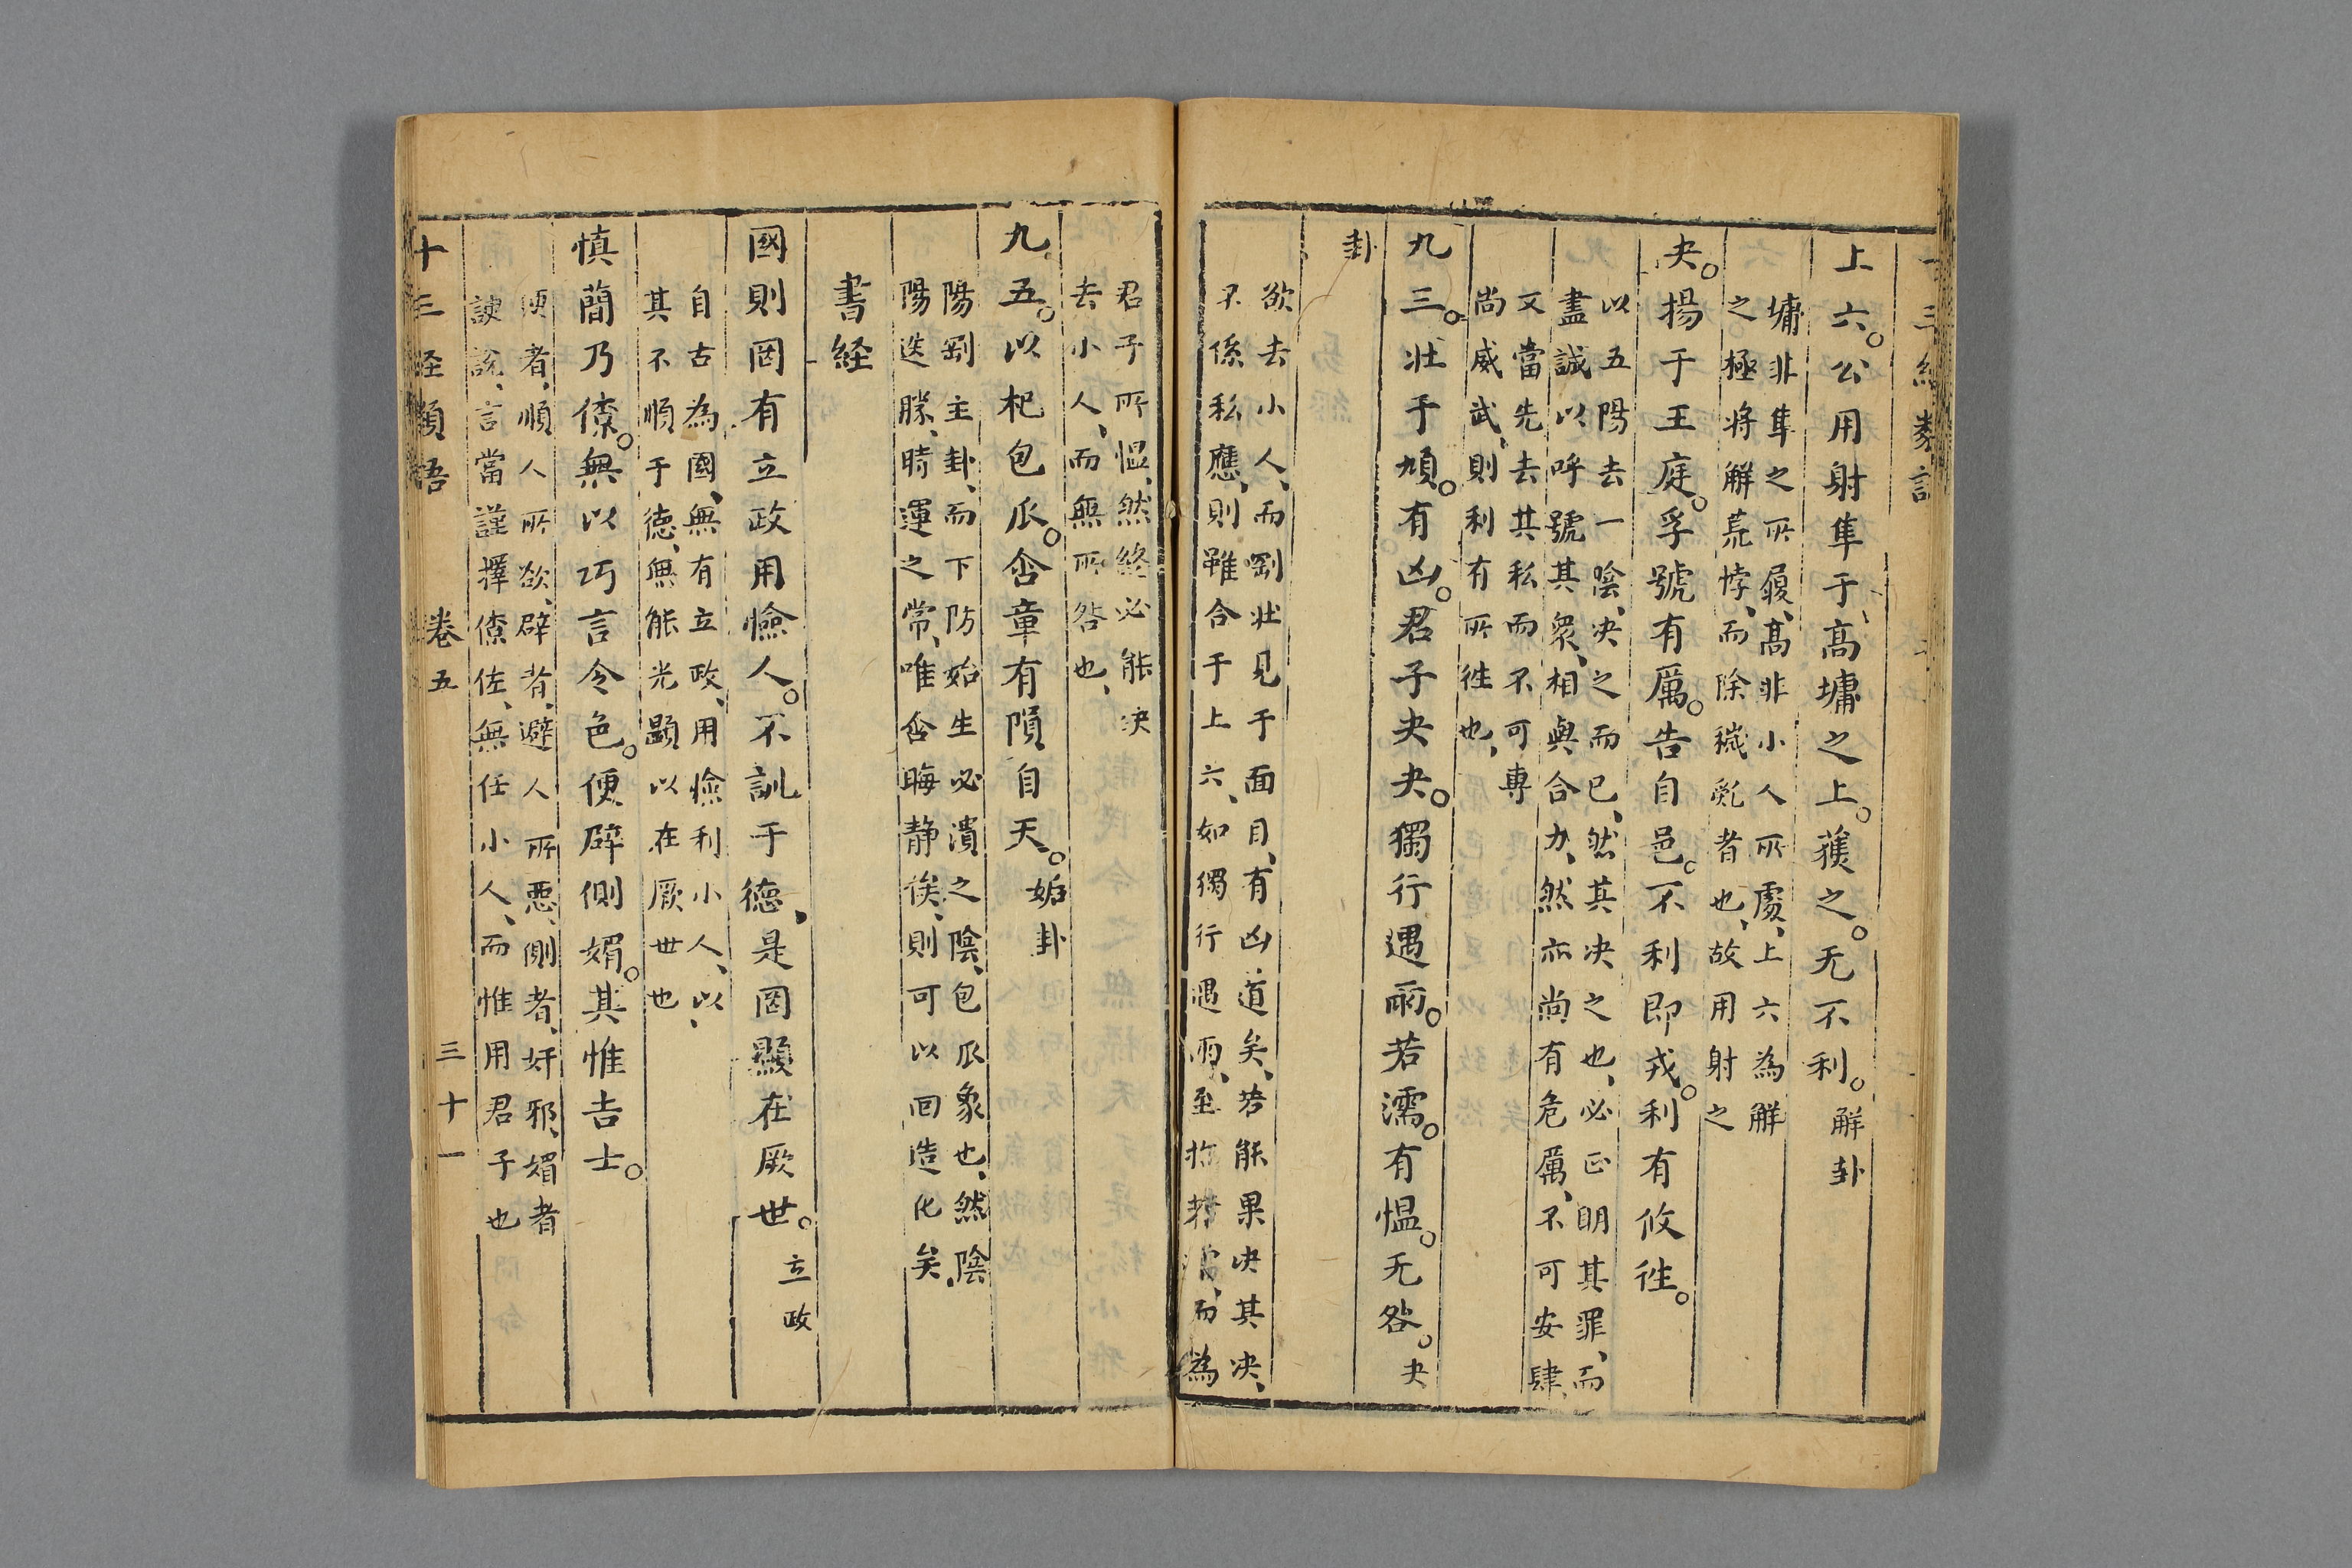 上六。公用射隼于高墉之上。獲之。无不利。解卦
墉非隼之所履、高非小人所處、上六為解
之極將解荒悖、而除穢亂者也、故用射之
夬。揚于王庭。孚號有厲。告自邑。不利即戎。利有攸往。
以五陽去一陰、決之而已、然其決之也、必正明其罪、而
盡誠以呼號其衆、相與合力、然亦尚有危厲、不可安肆、
又當先去其私而不可專
尚威武、則利有所往也、
九三。壮于頄。有凶。君子夬夬。獨行遇雨。若濡。有愠。无咎。夬
卦
欲去小人、而剛壮見于面目、有凶道矣、若能果決其決、
不係私應、則雖合于上六、如獨行遇雨、至於若濡、而為
君子所愠、然終必能決
去小人、而無所咎也、
九五。以杞包瓜。含章有隕自天。姤卦
陽剛主卦、而下防始生必潰之陰、包瓜象也、然陰
陽迭勝、時運之常、唯含晦静俟、則可以回造化矣、
書経
國則罔有立政用憸人。不訓于徳、是罔顯在厥世。立政
自古為國、無有立政、用憸利小人、以、
其不順于徳、無能光顕以在厥世也
慎簡乃僚。無以巧言令色。便辟側媚。其惟吉士。
便者、順人所欲、辟者、避人所悪、側者、奸邪、媚者
諛説、言當謹擇僚佐、無任小人、而惟用君子也
十三経類語 卷五 三十一